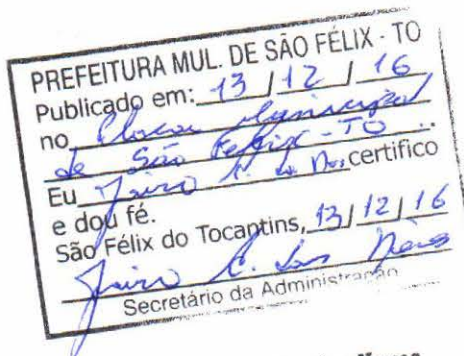 PREFEITURA MUL. DE SÃO FÉLIX - TO
Publicado em: 13 / 12 / 16
no Placar Municipal
de São Felix - TO
Eu Jairo certifico
e dou fé.
São Félix do Tocantins, 13 / 12 / 16
Jairo
Secretário da Administração